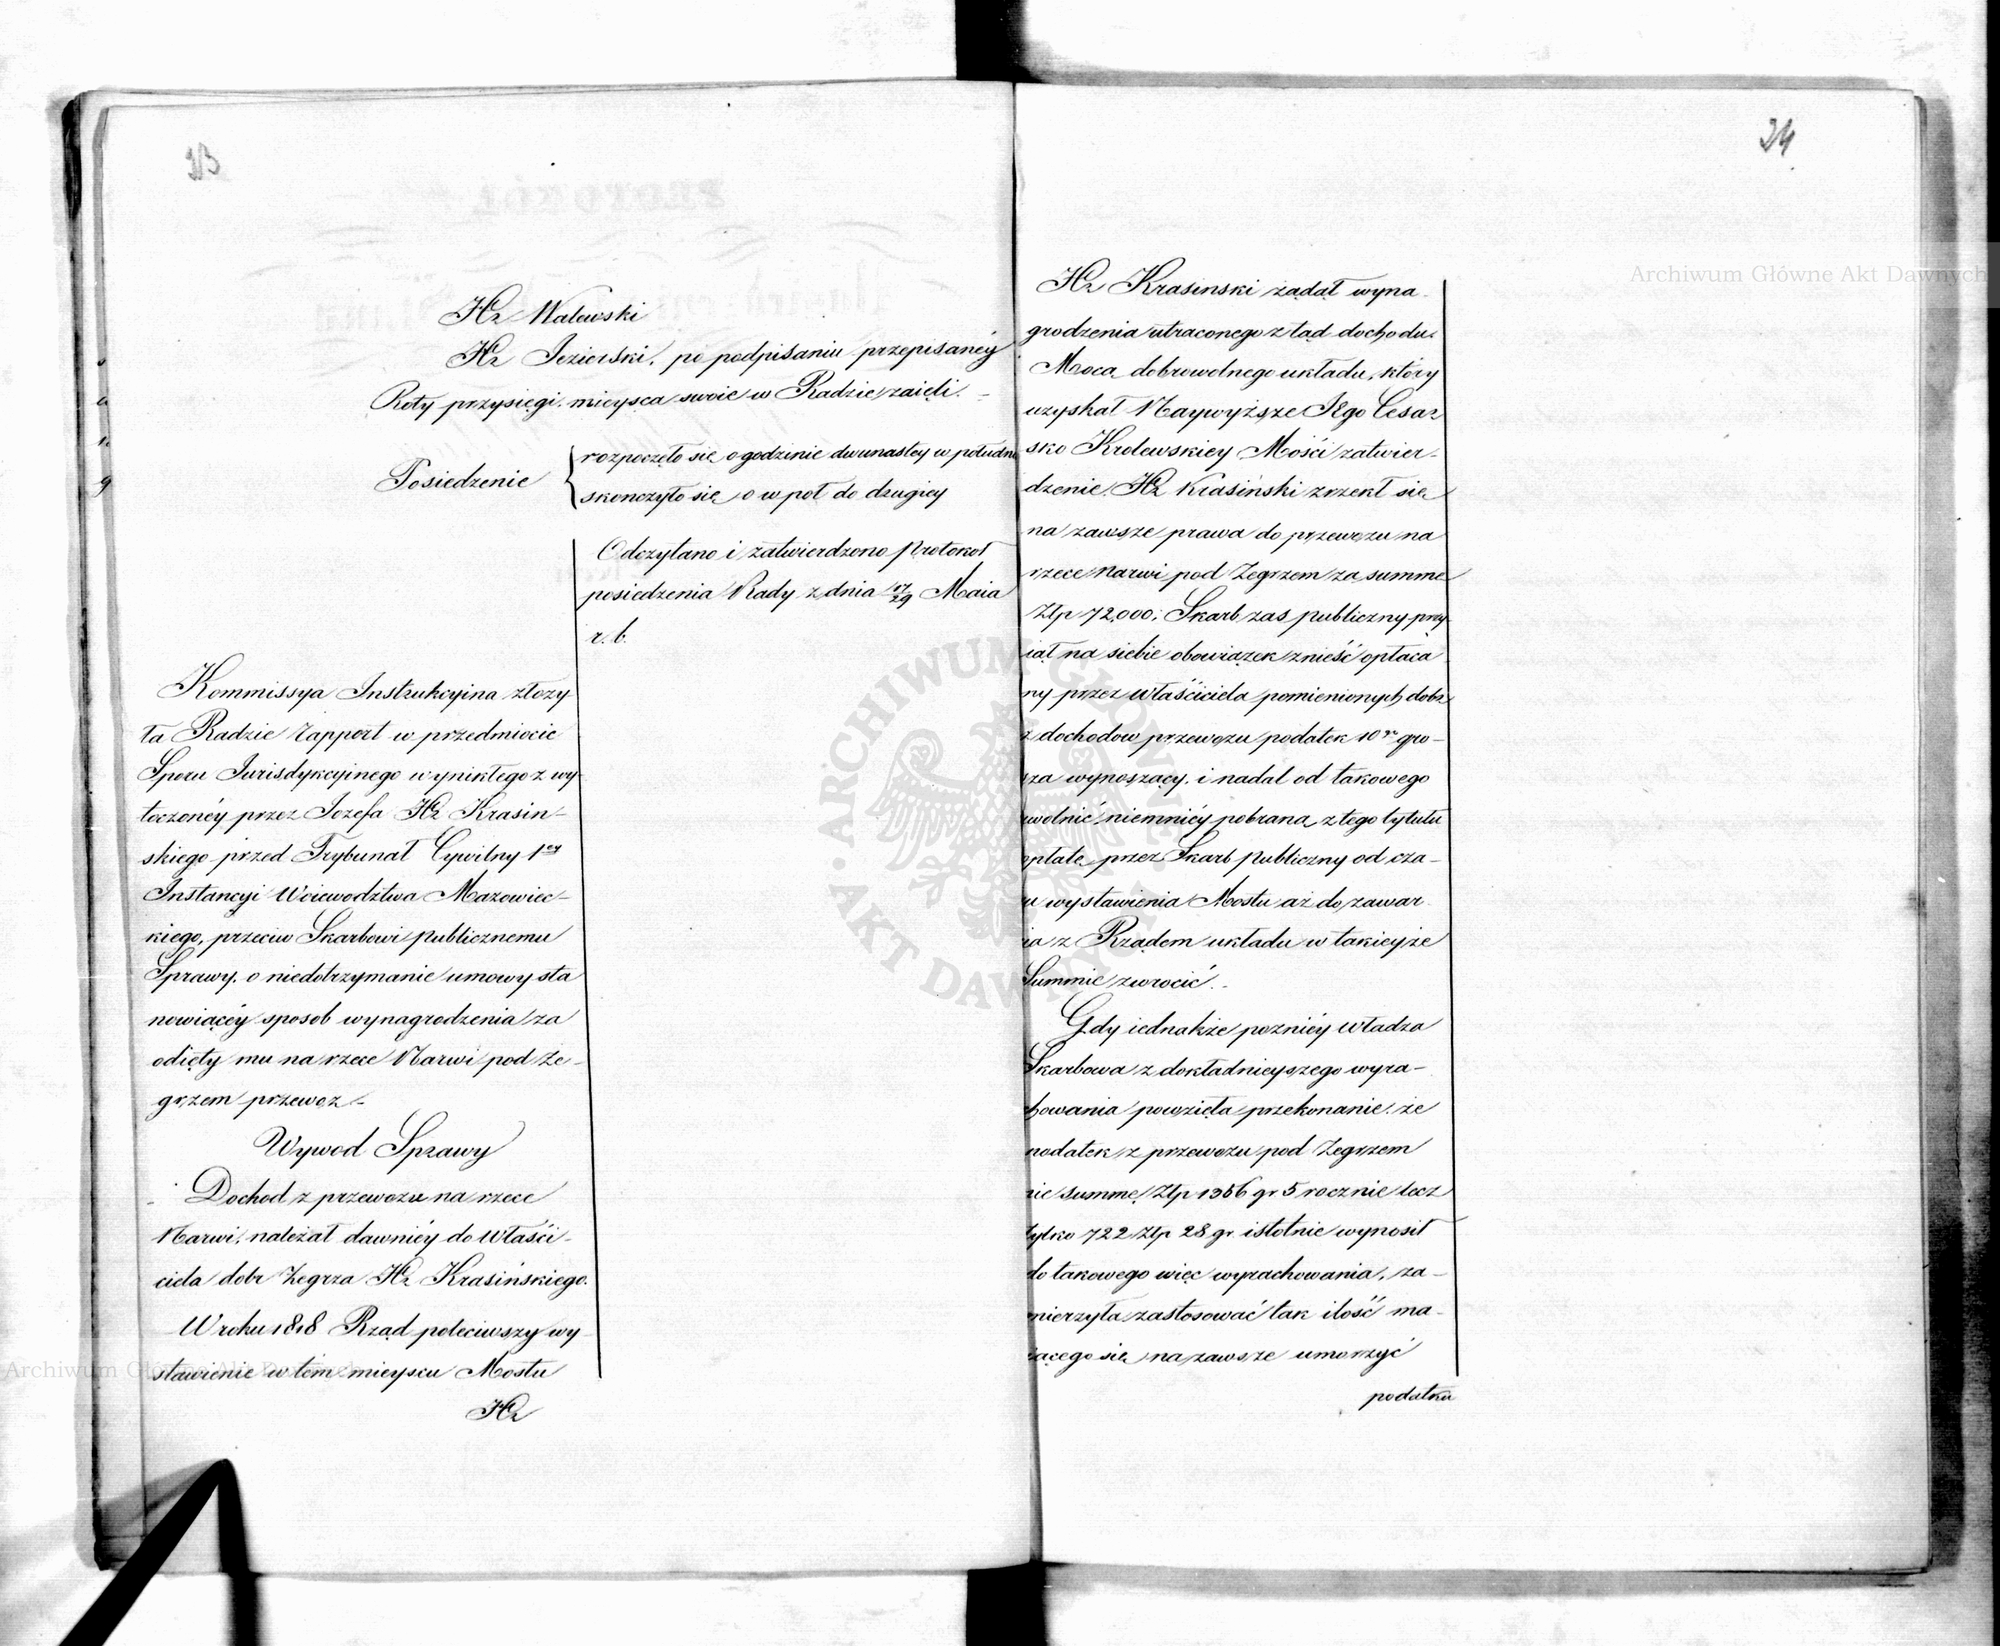 23
Hr. Walewski
Hr. Jezierski, po podpisaniu przepisanéy
Roty przysięgi, mieysca swoie w Radzie zaięli. –
Posiedzenie
rozpoczęło się o godzinie dwunastey w południe
skonczyło się o w poł do drugiey
Odczytano i zatwierdzono Protokoł
posiedzenia Rady z dnia 17/29 Maia
r. b.
Kommissya Instrukcyina złozy
ła Radzie rapport w przedmiocie
Sporu Jurisdykcyinego wynikłego z wy-
toczonéy przez Jozefa Hr. Krasin-
skiego przed Trybunał Cywilny 1ey
Instancyi Woiewodztwa Mazowiec-
kiego, przeciw Skarbowi publicznemu
Sprawy, o niedotrzymanie umowy sta
nowiącéy sposob wynagrodzenia za
odięty mu na rzece Narwi pod Ze-
grzem przewoz –
Wywod Sprawy
Dochod z przewozu na rzece
Narwi, należał dawniéy do Właści-
ciela dobr Zegrza Hr. Krasińskiego.
W roku 1818 Rząd poleciwszy wy-
stawienie w tém mieyscu Mostu
Hr.
24
Hr. Krasinski żądał wyna-
grodzenia utraconego z tąd dochodu.
Mocą dobrowolnego układu, który
uzyskał Naywyższe JEgo Cesar
sko Krolewskiey Mości zatwier-
dzenie, Hr. Krasiński zrzekł się
na zawsze prawa do przewozu na
rzece Narwi pod Zegrzem za summę
Złp 72,000; Skarb zas publiczny przy-
iął na siebie obowiązek znieść opłaca
ny przez właściciela pomienionych dobr
z dochodow przewozu podatek 10go gro-
sza wynoszący, i nadal od takowego
uwolnić, niemniéy pobraną z tego tytułu
opłatę przez Skarb publiczny od cza-
su wystawienia Mostu aż do zawar-
ia z Rządem układu w takieyże
Summie zwrocić. –
Gdy iednakże pozniéy Władza
Skarbowa z dokładnieyszego wyra-
chowania powzięła przekonanie, że
podatek z przewozu pod Zegrzem
nie summę Złp 1356 gr. 5 rocznie lecz
tylko 722 Złp 28 gr. istotnie wynosił
do takowego więc wyrachowania, za-
mierzyła zastosować tak ilość ma-
iącego się na zawsze umorzyć
podatku
ARCHIWUM GŁÓWNE AKT DAWNYCH
Archiwum Główne Akt Dawnych
Archiwum Główne Akt Dawnych